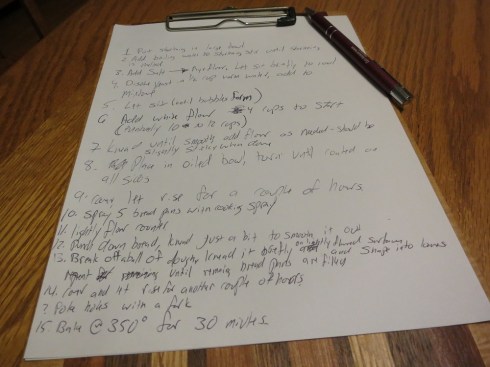 1. Put shortening in large bowl
2. Add boiling water to shortening stir until shortening is melted
3. Add Salt → Rye flour, let sit briefly to cool
4. Dissolve yeast in ½ cup warm water, add to
Mixture
5. Let sit (until bubbles form)
6. Add white flour 4 cups to start
(probably 10 to 12 cups)
7. Knead until smooth add flour as needed - should be
slightly sticky when done
8. Place in oiled bowl, turn until coated on
all sides
9. Cover, let rise for a couple of hours.
10. Spray 5 bread pans with cooking spray
11. lightly flour counter
12. Punch down bread, knead just a bit to smooth it out
13. Break off of dough knead it briefly on lightly floured surface, and shape into loaves
repeat until remaining bread pans are filled
14. Cover and let rise for another couple of hours
? Poke holes with a fork
15. Bake @ 350° for 30 minutes.